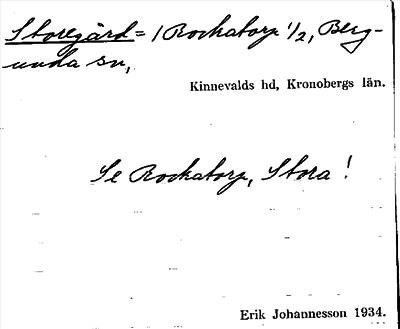 Storegård = 1 Rockatorp 1/2, Berg-
unda sn,
Kinnevalds hd, Kronobergs län.
Se Rockatorp, Stora !
Erik Johannesson 1934.